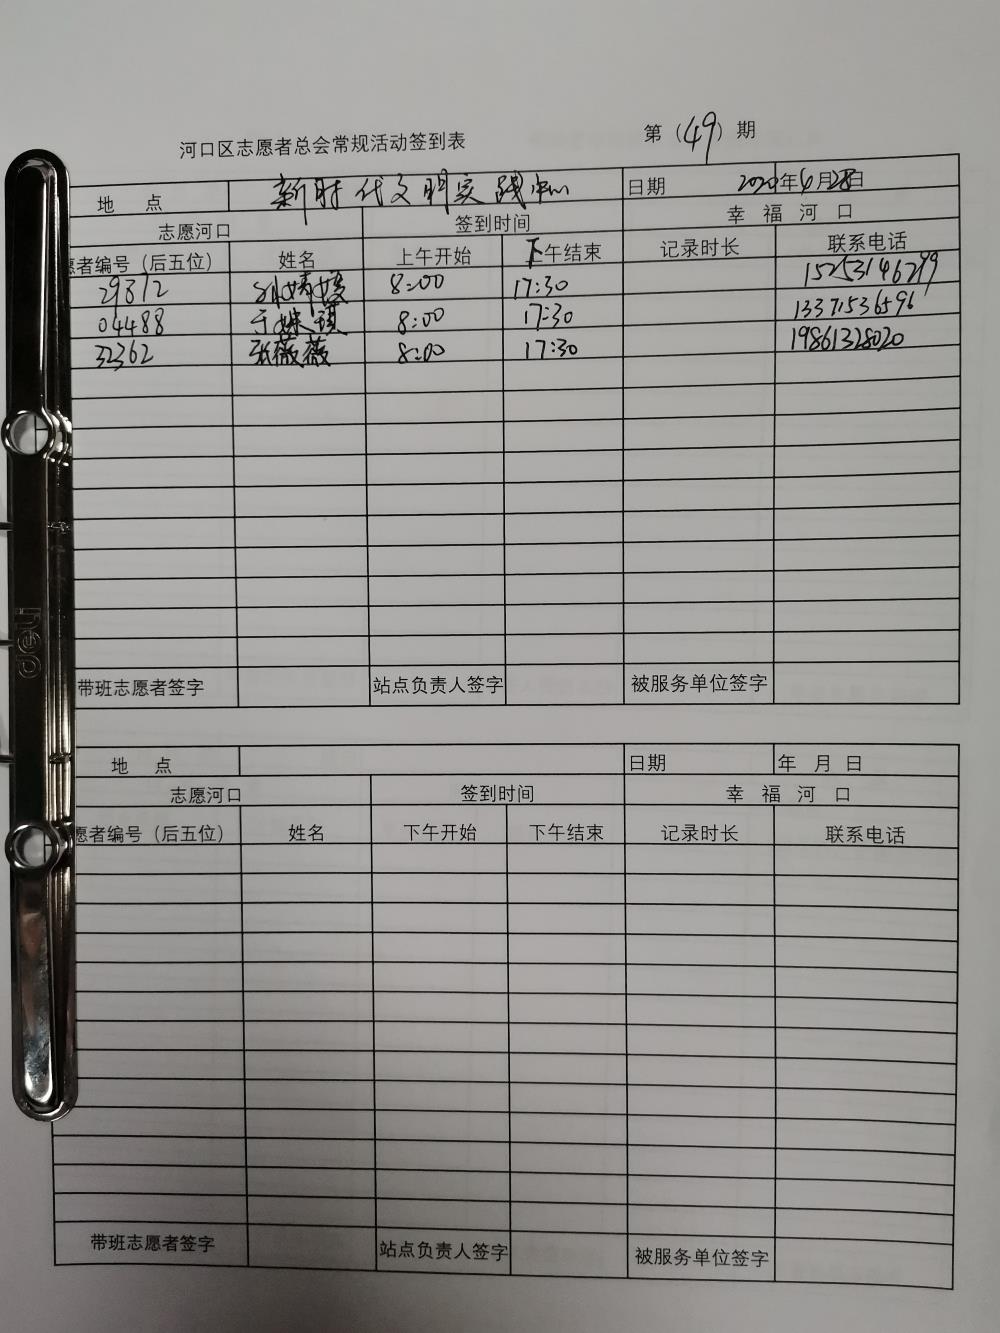 河口区志愿者总会常规活动签到表 第（49）期
地 点 新时代文明实践中心 日期 2020年6月28日
志愿河口 签到时间 幸 福 河 口
愿者编号（后五位） 姓名 上午开始 下午结束 记录时长 联系电话
29312 8:00 17:30 15253146299
04488 于姝琪 8:00 17:30 13371536596
32362 张薇薇 8:00 17:30 19861328020
带班志愿者签字 站点负责人签字 被服务单位签字
地 点 日期 年 月 日
志愿河口 签到时间 幸 福 河 口
愿者编号（后五位） 姓名 下午开始 下午结束 记录时长 联系电话
带班志愿者签字 站点负责人签字 被服务单位签字
deli